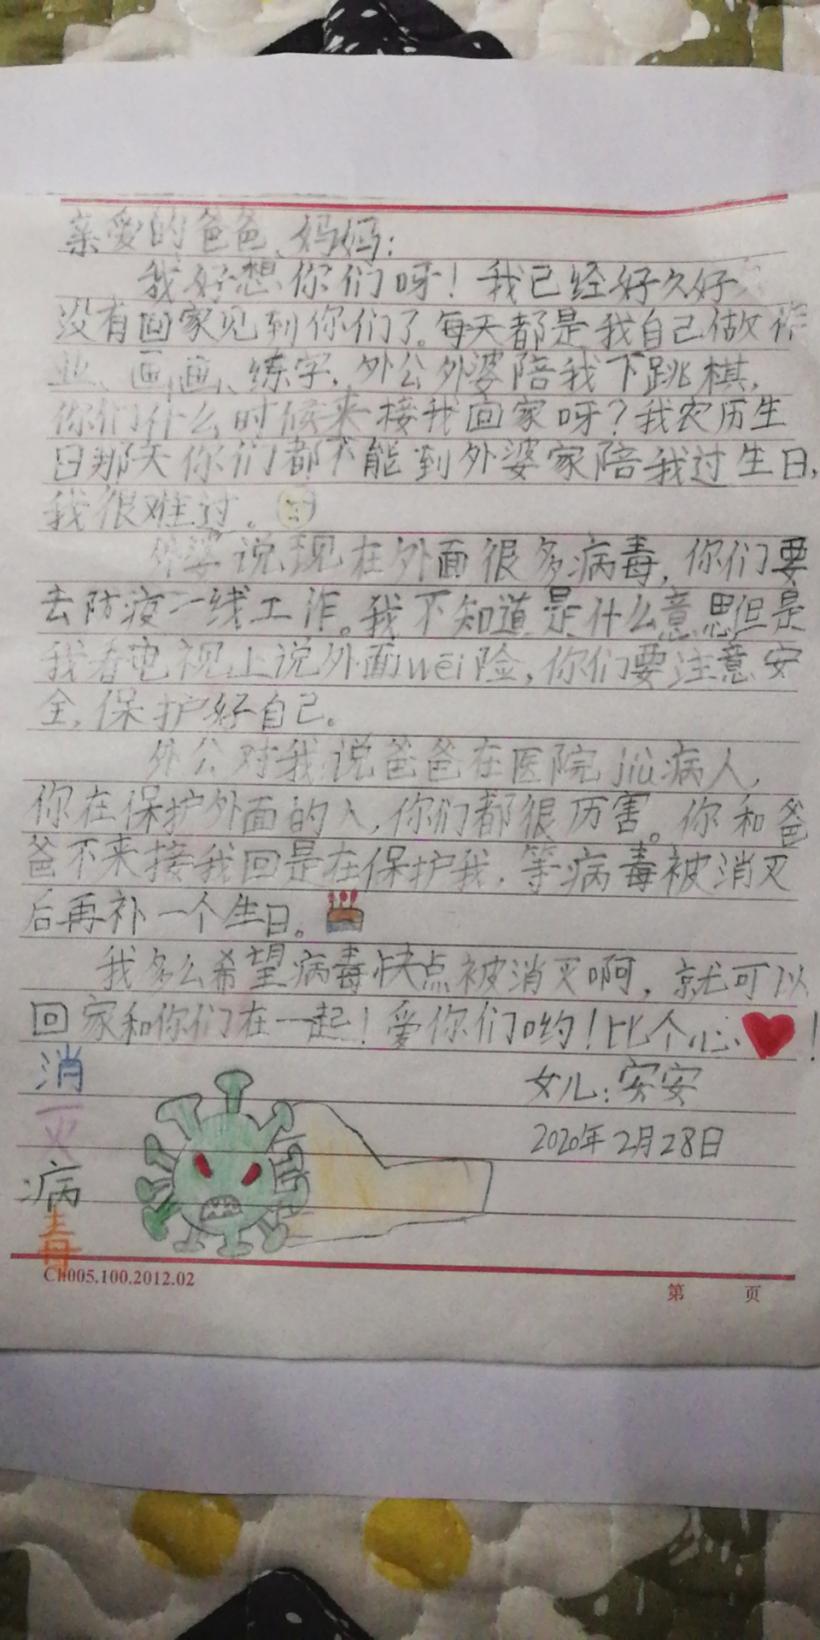 亲爱的爸爸、妈妈：
我好想你们呀！我已经好久好
没有回家见到你们了。每天都是我自己做作
业、画画、练字，外公外婆陪我下跳棋，
你们什么时候来接我回家呀？我农历生
日那天你们都不能到外婆家陪我过生日，
我很难过。
外婆说现在外面很多病毒，你们要
去防疫一线工作。我不知道是什么意思但是
我看电视上说外面wēi险，你们要注意安
全，保护好自己。
外公对我说爸爸在医院jiù病人，
你在保护外面的人，你们都很厉害。你和爸
爸不来接我回是在保护我，等病毒被消灭
后再补一个生日。
我多么希望病毒快点被消灭啊，就可以
回家和你们在一起！爱你们哟！比个心！
女儿：安安
2020年2月28日
消
灭
病
毒
CH005.100.2012.02
第 页